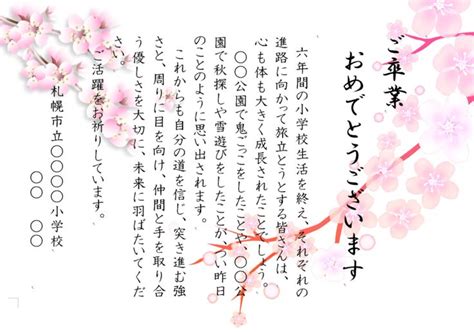 ご卒業
おめでとうございます
六年間の小学校生活を終え、それぞれの
進路に向かって旅立とうとする皆さんは、
心も体も大きく成長されたことでしょう。
〇〇公園で鬼ごっこをしたことや、〇〇公
園で秋探しや雪遊びをしたことが、つい昨日
のことのように思い出されます。
これからも自分の道を信じ、突き進む強
さと、周りに目を向け、仲間と手を取り合
う優しさを大切に、未来に羽ばたいてくだ
さい。
ご活躍をお祈りしています。
札幌市立〇〇〇〇小学校
〇〇 〇〇